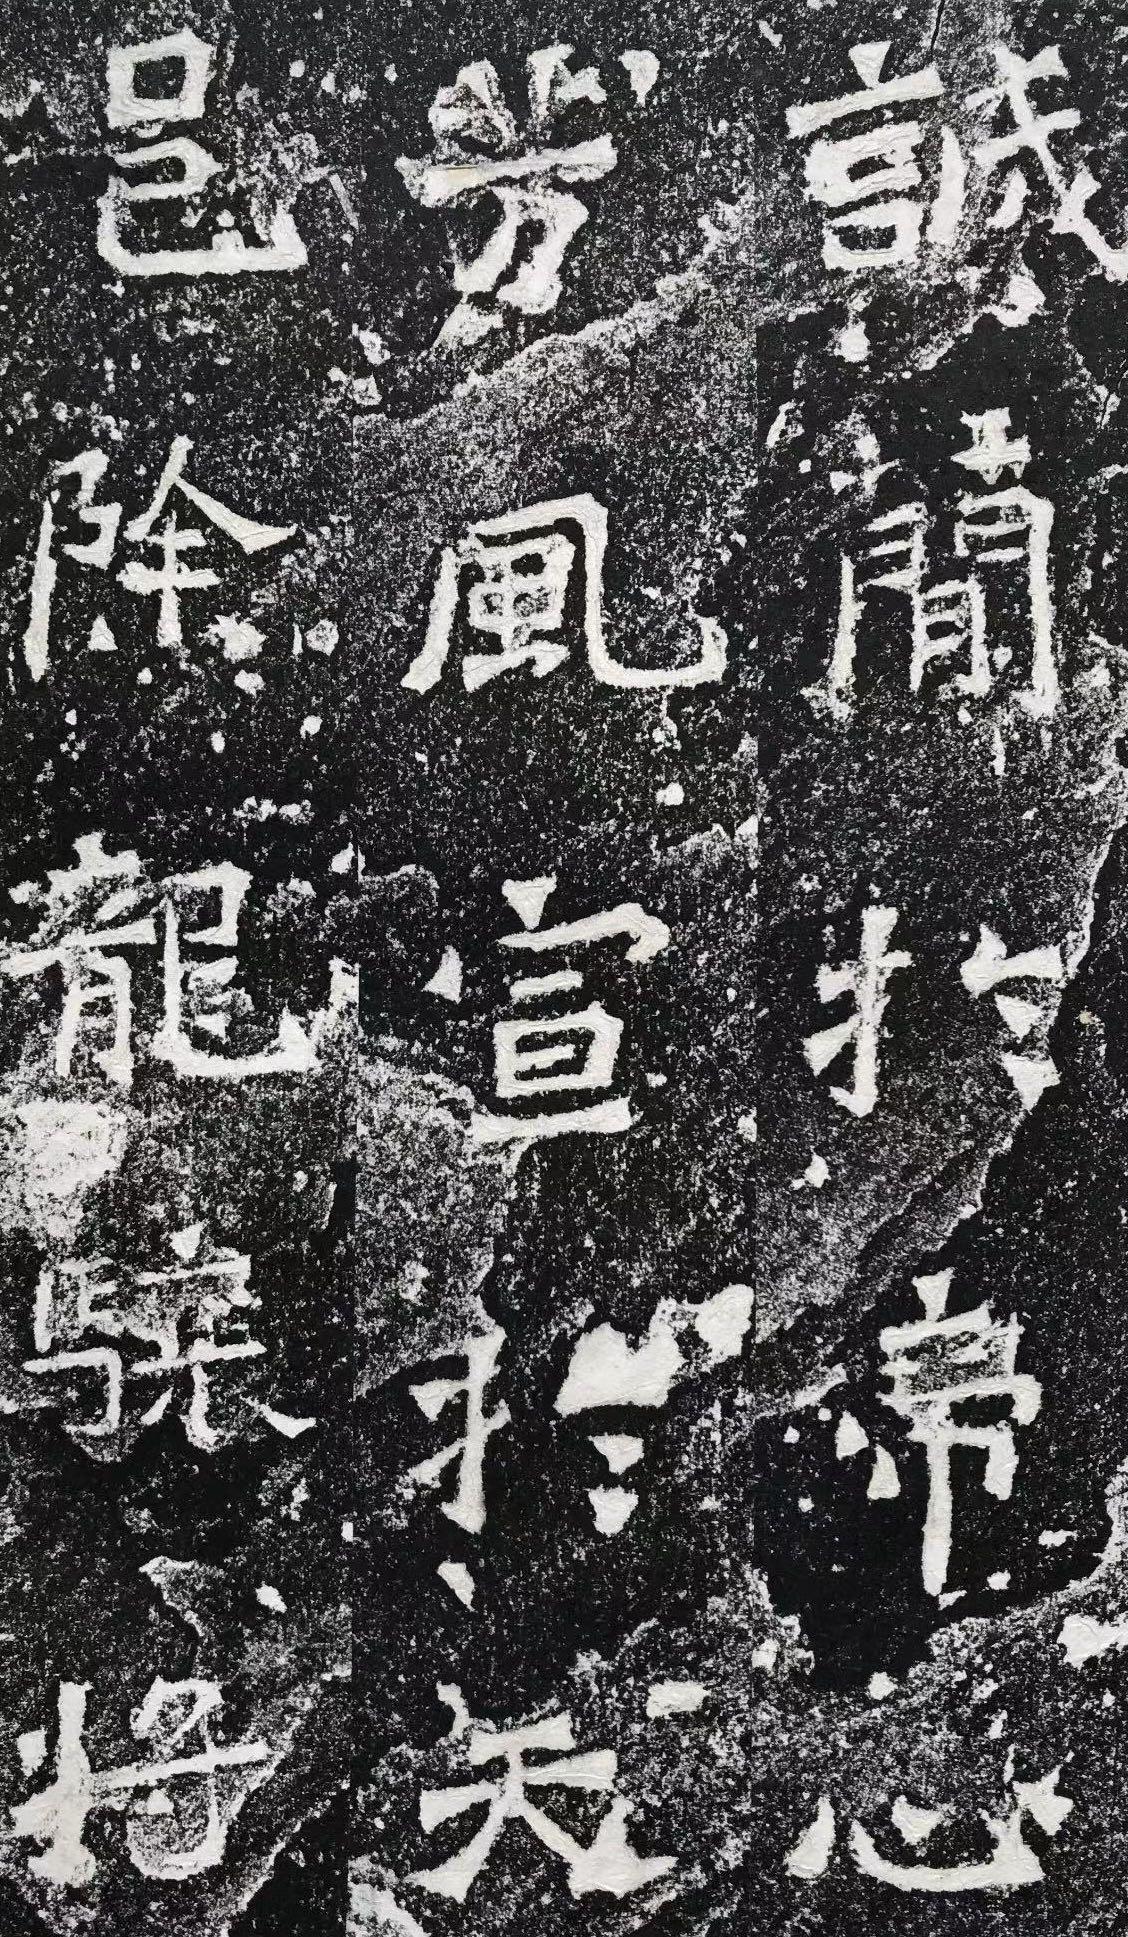 誠簡扵帝心
芳風宣扵天
邑除龍驤將